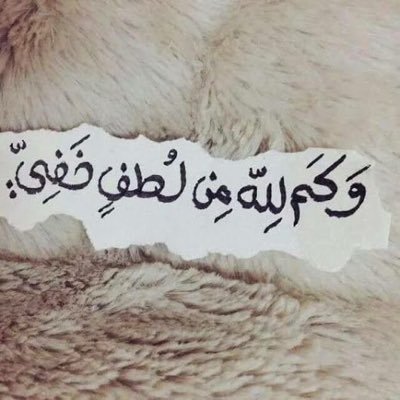 وَكَم لِلّه مِن لُطفٍ خَفِيّ: